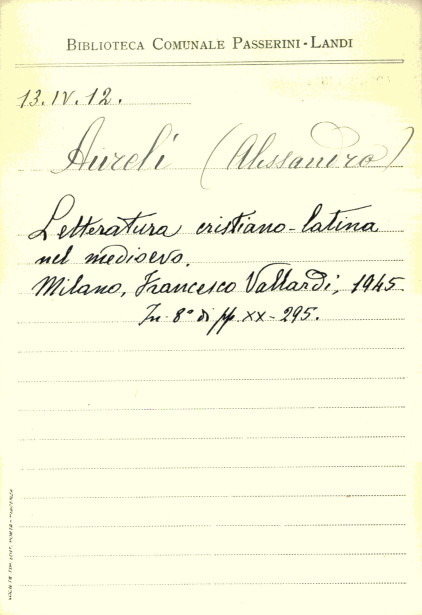 BIBLIOTECA COMUNALE PASSERINI-LANDI
13.IV.12.
Aureli (Alessandro)
Letteratura cristiano-latina
nel medioevo.
Milano, Francesco Vallardi, 1945
In-8° di pp. XX-295.